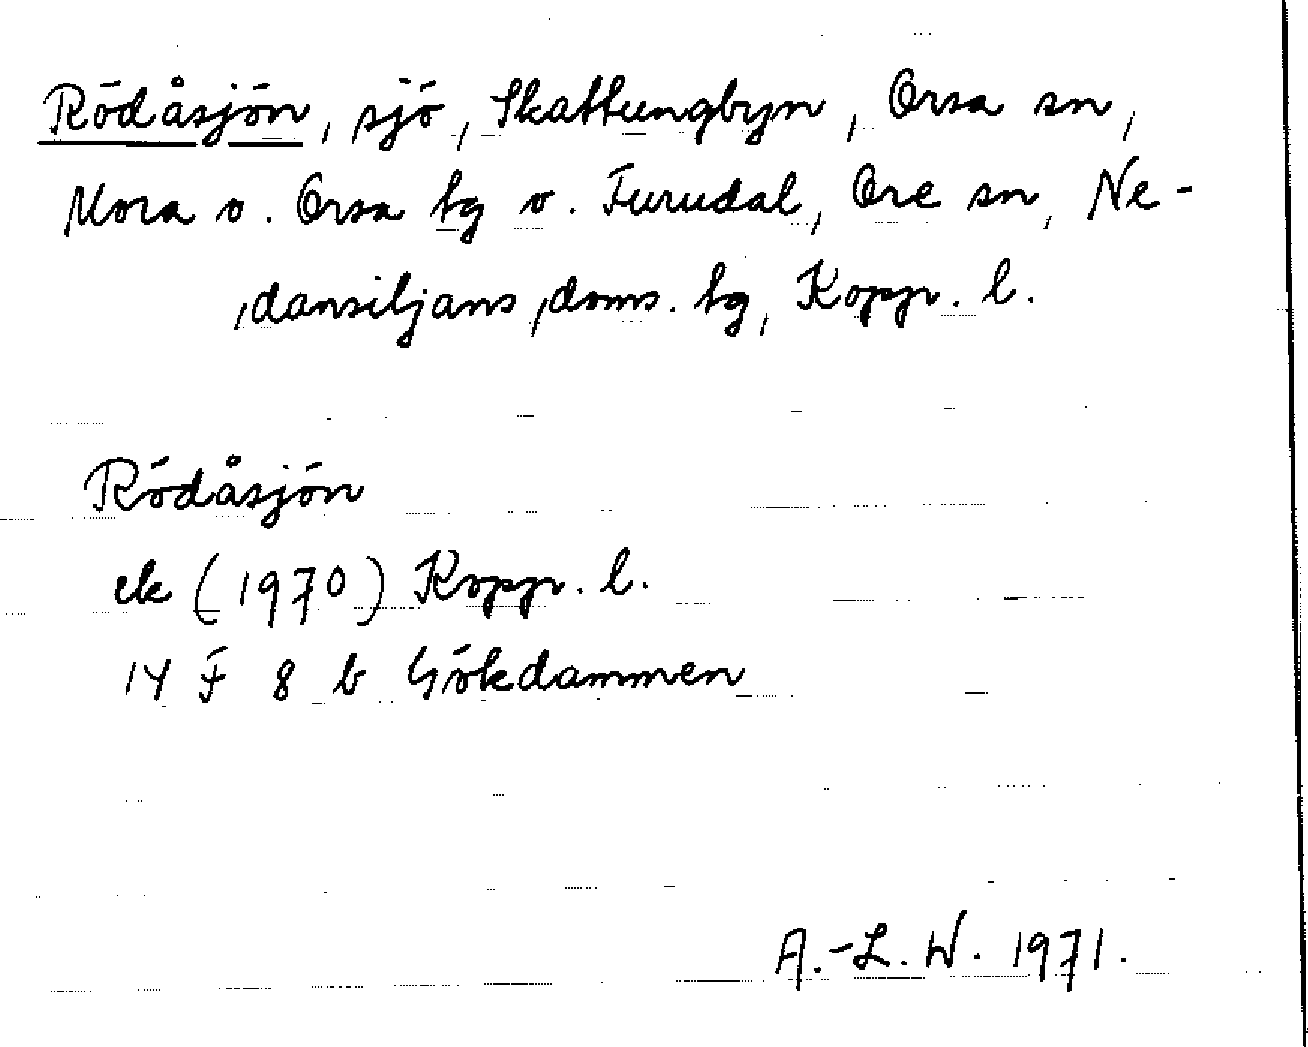 Rödåsjön, sjö, Skattungbyn, Orsa sn,
Mora o. Orsa tg o. Furudal, Ore sn, Ne-
dansiljans doms. tg, Koppr. l.
Rödåsjön
ek (1970) Koppr. l.
14 F 8 b Gökdammen
A.-L. W. 1971.